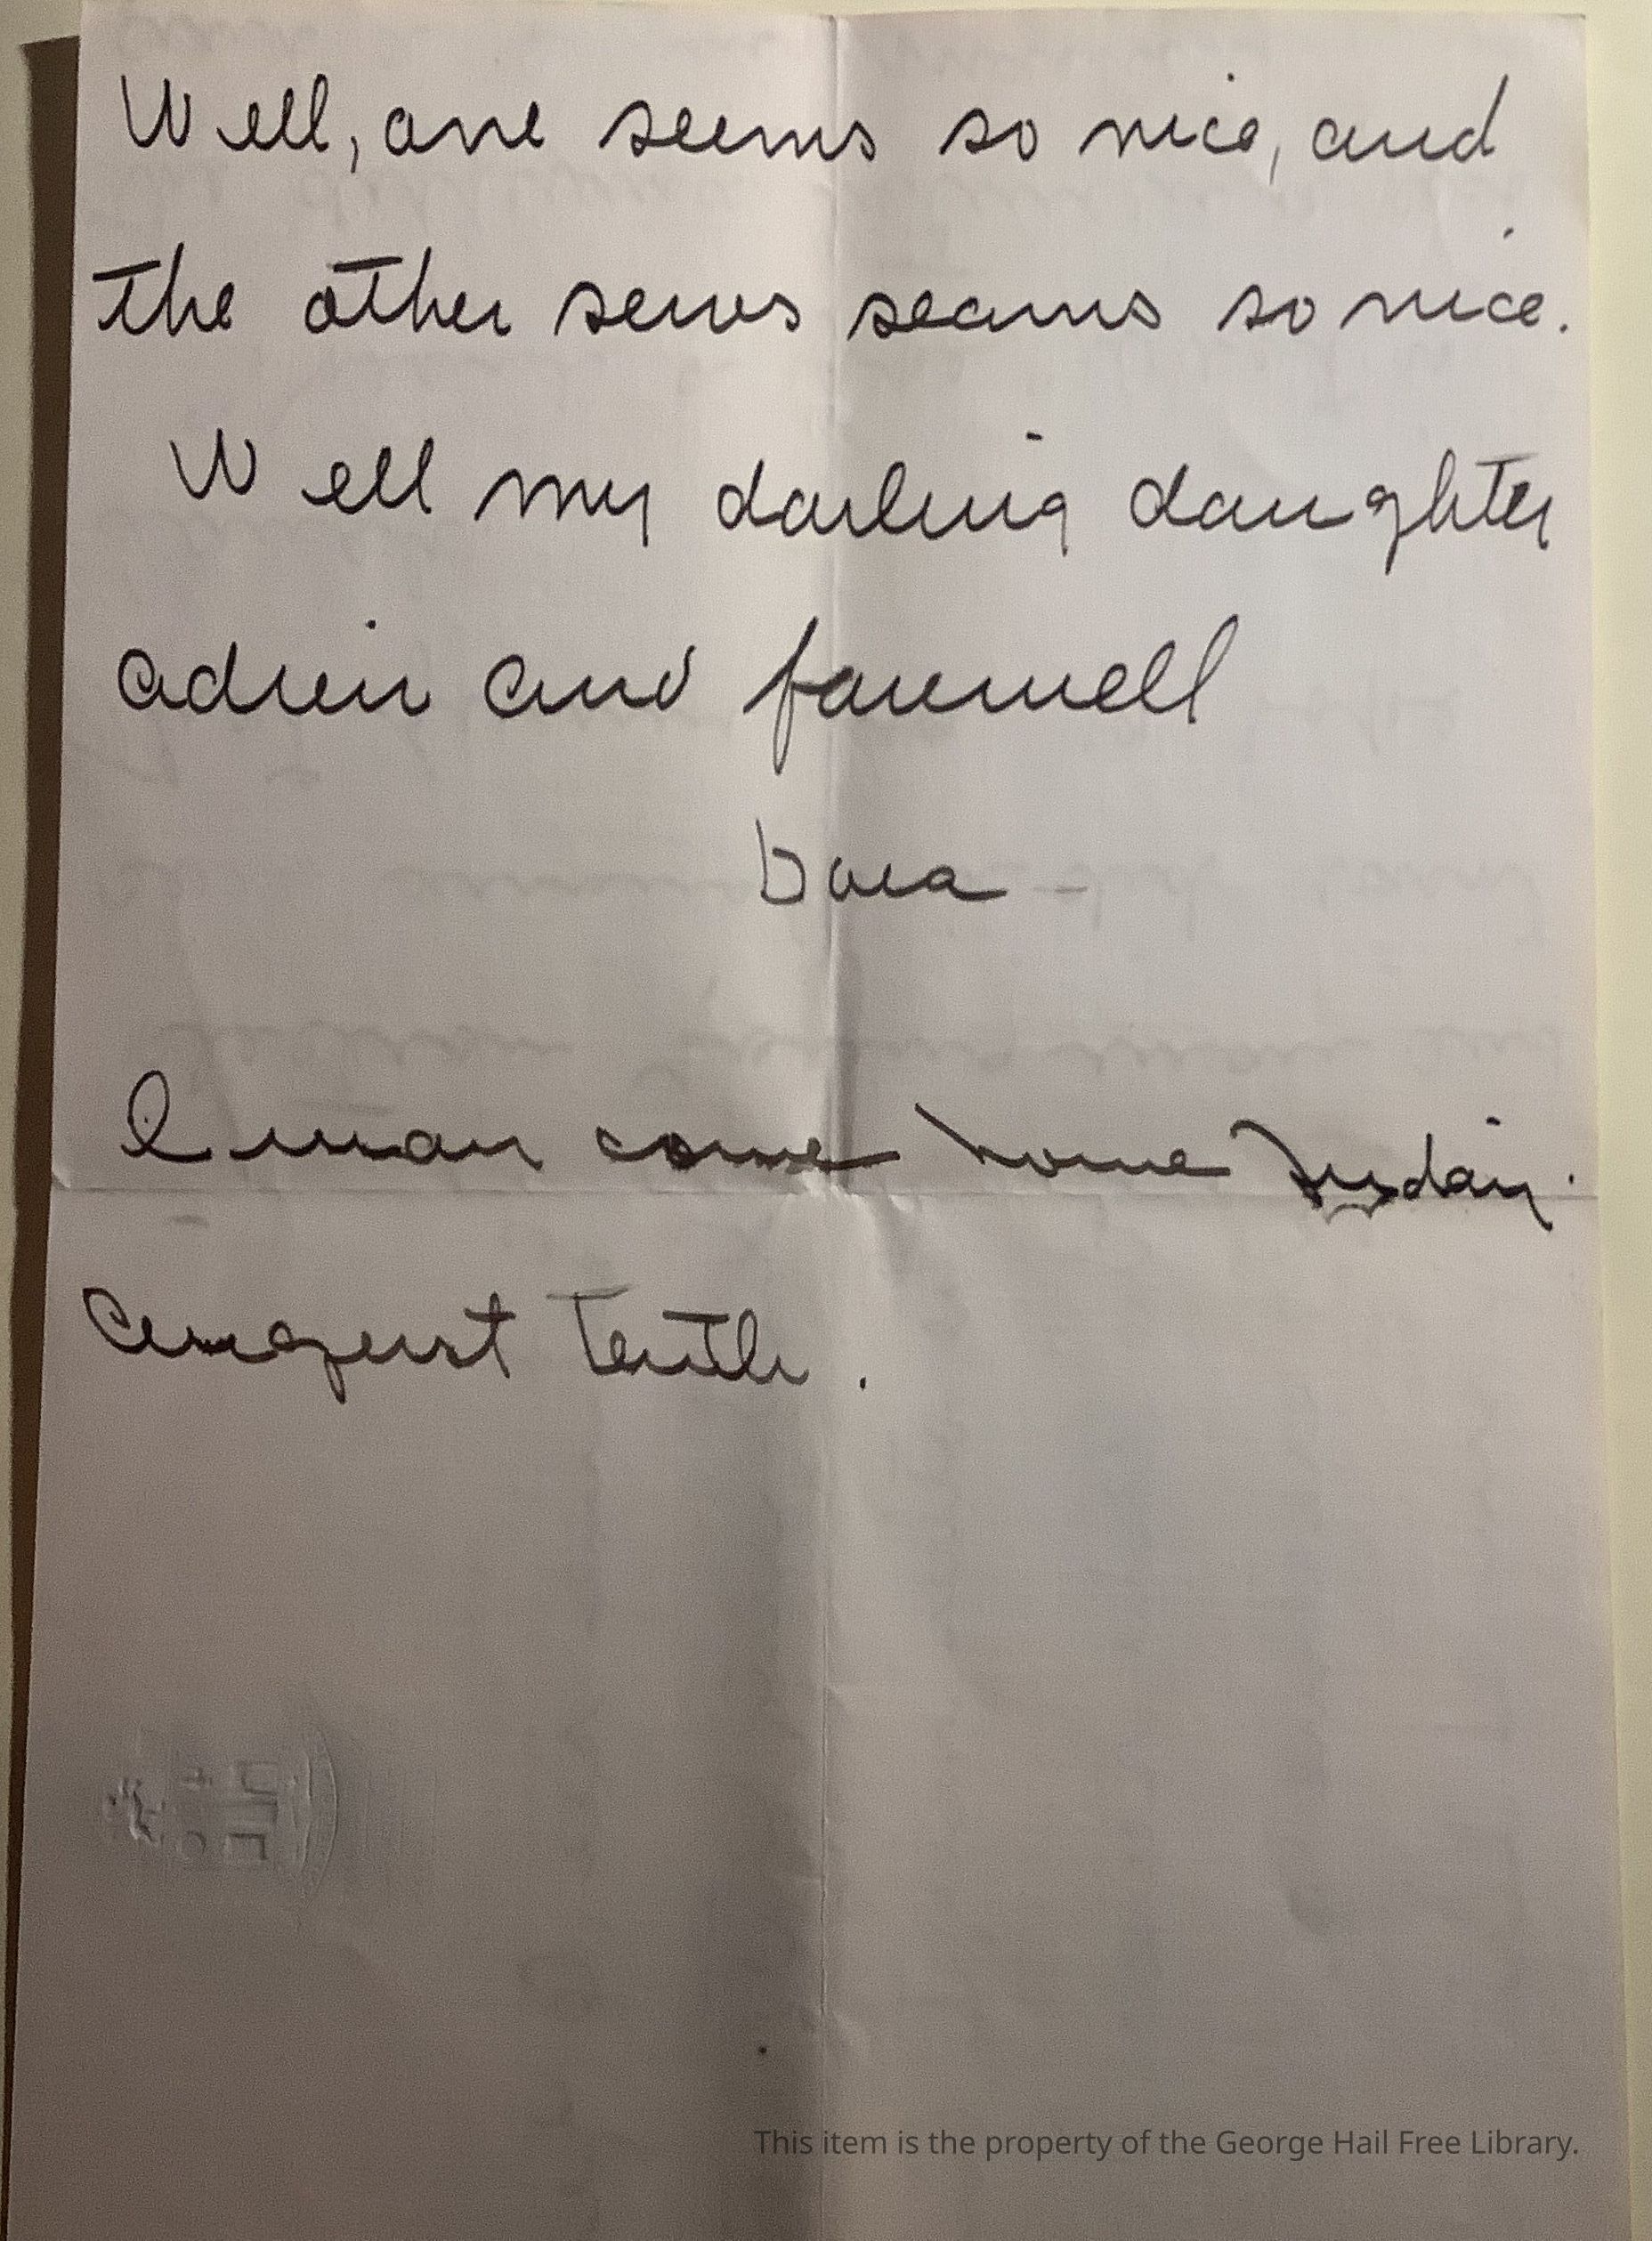 Well, one seems so nice, and
the other seems seams so nice.
Well my darling daughter
adieu and farewell
Dora
I may come home
August tenth.
This item is the property of the George Hail Free Library.